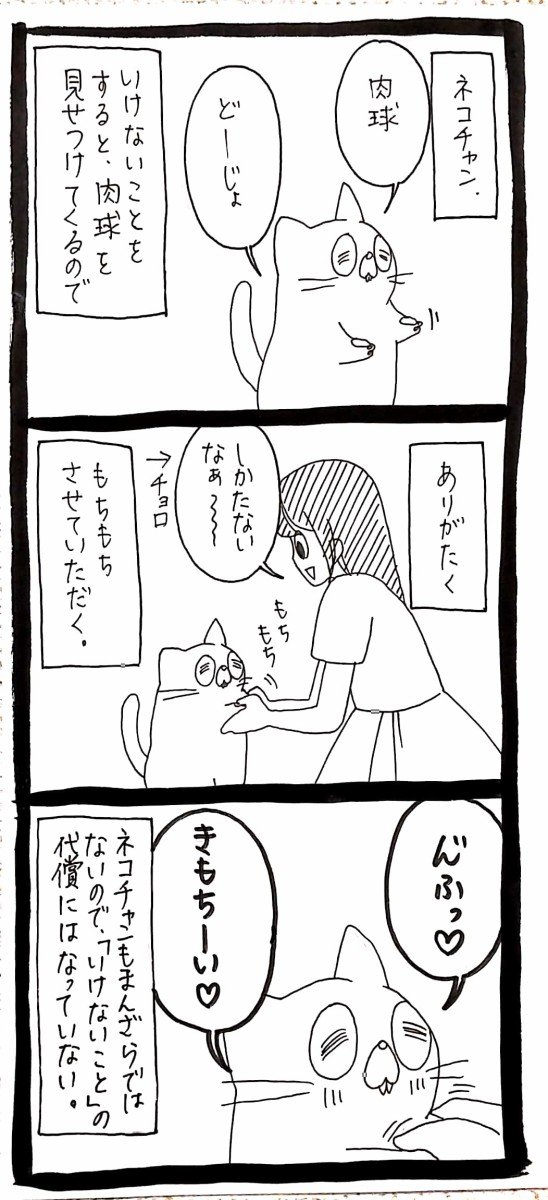 ネコチャン.
肉球
どーじょ
いけないことを
すると、肉球を
見せつけてくるので
ありがたく
しかたない
なぁ〜〜
→チョロ
もちもち
もちもち
させていただく。
んふっ♡
きもちーい♡
ネコチャンもまんざらでは
ないので、「いけないこと」の
代償にはなっていない。